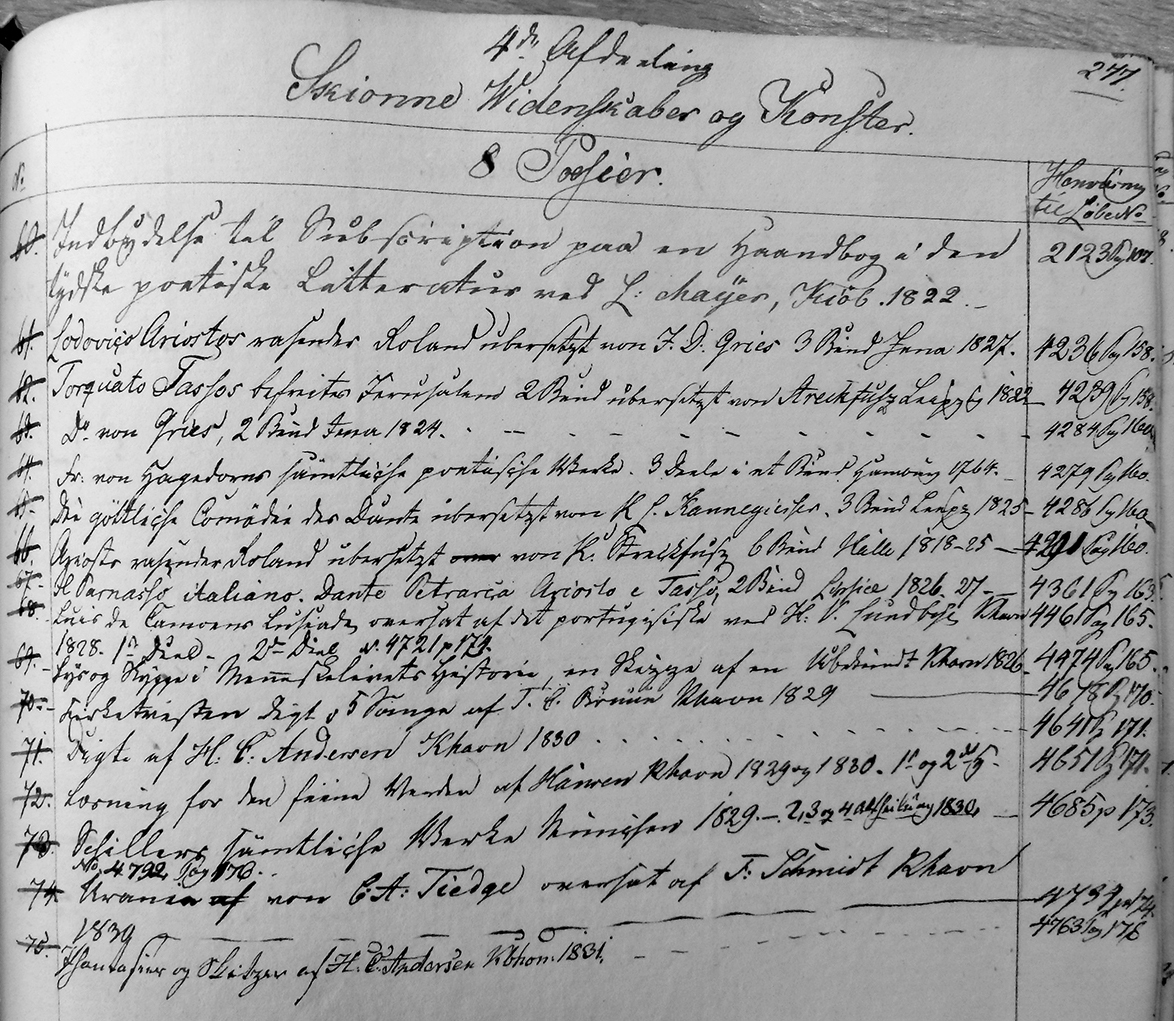 4de Afdeeling
277.
Skionne Widenskaber og Konster.
No
8 Poesier.
Henviisning
til Løbe No
60. Indbydelse til Subscription paa en Haandbog i den 2123 Pag 107.
tydske poetiske Litteratur ved L: Mayer, Kiøb. 1822. –
61. Lodovico Ariostos rasender Roland übersetzt von J. D. Gries 3 Bind Jena 1827. 4236 Pag 158.
62. Torquato Tassos befreites Jerusalem 2 Bind übersetzt von Streckfusz Leipzig 1822 – 4239 Pag 158.
63. Do von Gries, 2 Bind Jena 1824. 4284 Pag 160
64. Fr: von Hagedorns sämtliche poetische Werke. 3 Deele i et Bind Hamburg 1764. – 4279 Pag 160.
65. Die göttliche Comödie des Dante übersetzt von K. L. Kannegiesser. 3 Bind Leipz 1825 – 4286 Pag 160
66. Ariosts rasender Roland übersetzt von K. Streckfusz 6 Bind Halle 1818-25 – 4291 Pag 160.
67. Il Parnasso italiano. Dante Petrarca Ariosto e Tasso, 2 Bind Lipsice 1826-27 – 4361 Pag 163
68. Luis de Camoens Lusiade oversat af det portugisiske ved H. V. Lundbye Khavn 4461 Pag 165.
1828. 1ste Deel – 2den Deel s. 4721 p 174.
69. Lys og Skygge i Menneskelivets Historie, en Skizze af en Ubekiendt Khavn 1826 4474 Pag 165.
70. – Digt i 5 Sange af T. C. Bruun Khavn 1829 — 4678 Pag 170.
71. Digte af H. C. Andersen Khavn 1830 4641 Pag 171.
72. Læsning for den fiine Verden af Khavn 1829 og 1830. 1ste og 2det H. 4651 Pag 171.
73. Schillers sämtliche Werke München 1829. – 2, 3 og 4 Abtheilung 1830. – 4685 p 173.
No 4792 Pag 176.
74. Urania af von C. A. Tiedge oversat af F: Schmidt Khavn
1839 — 4734 pa 174.
75. Phantasier og Skitzer af H. C. Andersen Kbhvn. 1831. – 4763 Pag 176